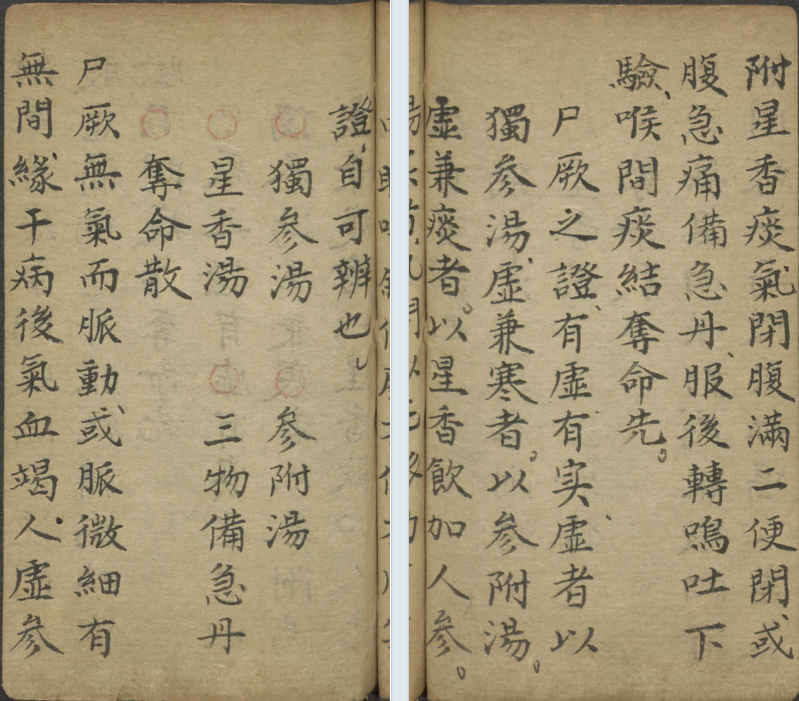 證、自可辨也
獨參湯　參附湯
星香湯　三物備急丹
奪命散
尸厥無氣而脈動、或脈微細有
無間、緣于病後氣血竭、人虛參
附星香痰氣閉腹滿二便閉、或
腹急痛備急丹、服後轉鳴吐下
驗、喉間痰結奪命先。
尸厥之證、有虛有实、虛者以
獨參湯、虛兼寒者。以參附湯。
虛兼痰者。以星香飲加人參。